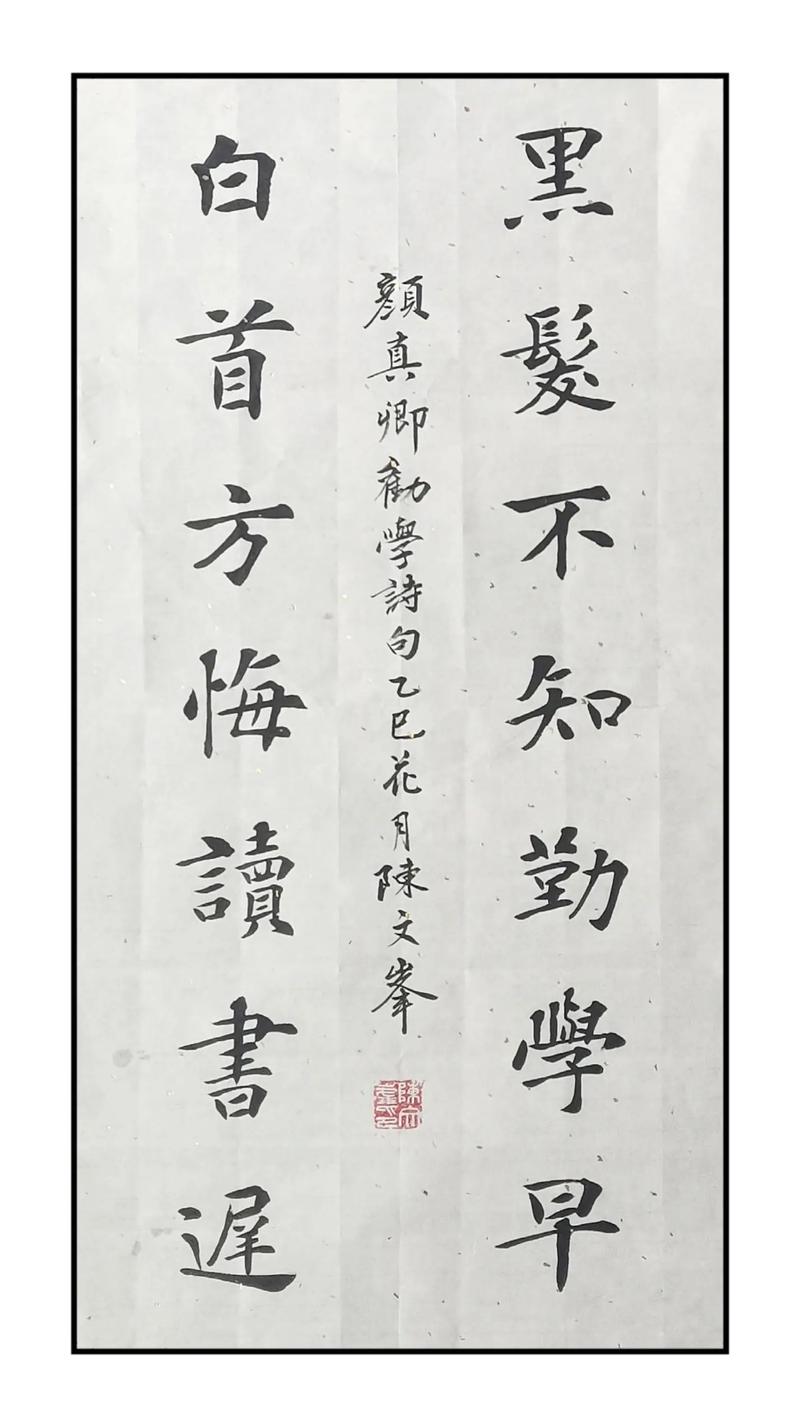 黑髮不知勤學早
顏真卿勸學詩句乙巳花月陳文峯
陳文峯印
白首方悔讀書遲